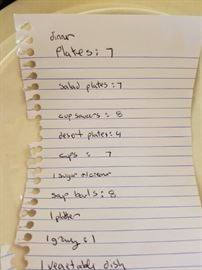 dinner
Plates: 7
salad plates: 7
cup saucers : 8
desert plates: 4
cups : 7
1 sugar + creamer
soup bowls : 8
1 platter
1 gravy : 1
1 vegetable dish